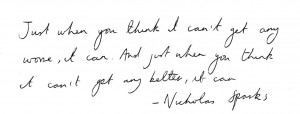 Just when you think it can't get any
worse, it can. And just when you think
it can't get any better, it can
- Nicholas Sparks